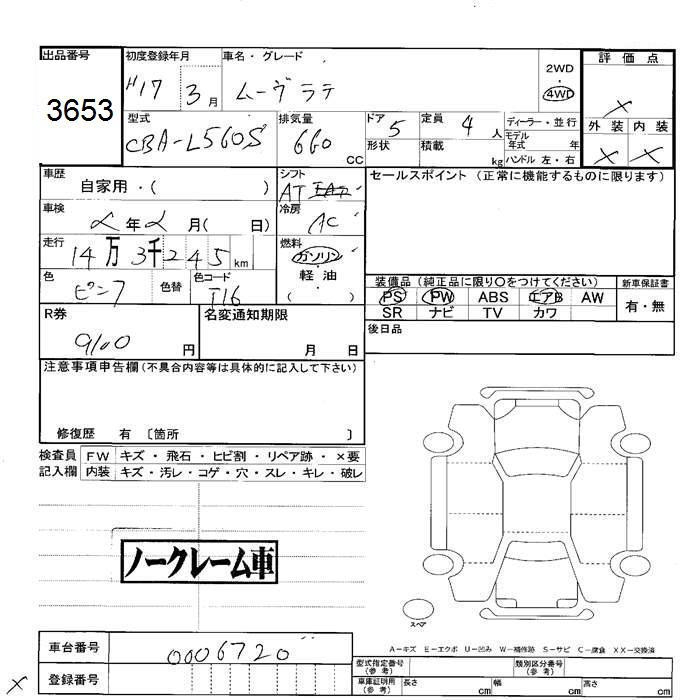 出品番号
3653
初度登録年月
H17 3月
車名・グレード
ムーヴラテ
2WD
・
4WD
評価点
X
外装 内装
X X
型式
CBA-L560S
排気量
660 CC
ドア 5
形状
定員 4人
積載 kg
ディーラー・並行
モデル年式 年
ハンドル 左・右
車歴
自家用・( )
シフト
AT
車検
年 月( 日)
冷房
AC
走行
14万3千245km
燃料
ガソリン
・
軽油
( )
色
ピンク
色替
色コード
T16
セールスポイント (正常に機能するものに限ります)
装備品 (純正品に限り○をつけてください)
PS PW ABS エアB AW
SR ナビ TV カワ
新車保証書
有・無
後日品
R券
9100円
名変通知期限
月 日
注意事項申告欄(不具合内容等は具体的に記入して下さい)
修復歴 有 〔箇所 〕
検査員記入欄
FW キズ・飛石・ヒビ割・リペア跡・×要
内装 キズ・汚レ・コゲ・穴・スレ・キレ・破レ
ノークレーム車
スペア
A−キズ E−エクボ U−凹み W−補修跡 S−サビ C−腐食 XX−交換済
車台番号
0006720
登録番号
型式指定番号(参考)
類別区分番号(参考)
車庫証明用(参考)
長さ cm 幅 cm 高さ cm
X